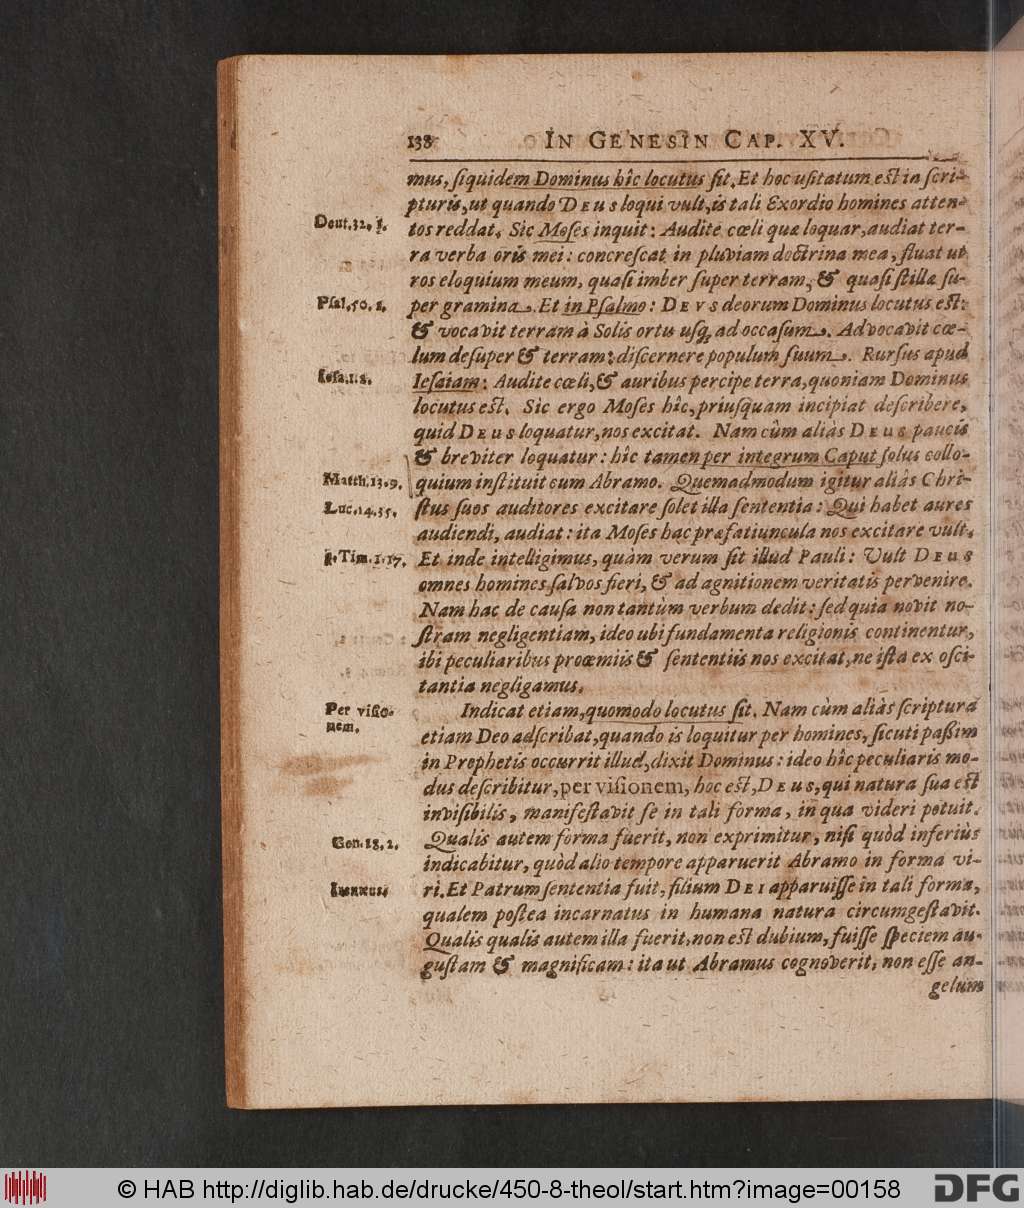 138 IN GENESIN CAP. XV.
mus, ſiquidem Dominus hîc locutus ſit. Et hoc uſitatum eſt in ſcri-
pturis, ut quando DEUS loqui vult, is tali Exordio homines atten-
Deut. 32. 1.
tos reddat. Sic Moſes inquit: Audite cœli quæ loquar, audiat ter-
ra verba oris mei: concreſcat in pluviam doctrina mea, fluat ut
ros eloquium meum, quaſi imber ſuper terram, & quaſi ſtillæ ſu-
Pſal. 50. 1.
per gramina. Et in Pſalmo: DEVS deorum Dominus locutus eſt:
& vocavit terram à Solis ortu uſq; ad occaſum. Advocavit cœ-
lum deſuper & terram: diſcernere populum ſuum. Rurſus apud
Ieſa. 1. 2.
Ieſaiam: Audite cœli, & auribus percipe terra, quoniam Dominus
locutus eſt. Sic ergo Moſes hîc, priuſquam incipiat deſcribere,
quid DEUS loquatur, nos excitat. Nam cùm aliàs DEUS paucis
& breviter loquatur: hîc tamen per integrum Caput ſolus collo-
Matth. 13. 9.
quium inſtituit cum Abramo. Quemadmodum igitur aliàs Chri-
Luc. 14. 35.
ſtus ſuos auditores excitare ſolet illa ſententia: Qui habet aures
audiendi, audiat: ita Moſes hac præfatiuncula nos excitare vult.
1. Tim. 1. 17.
Et inde intelligimus, quàm verum ſit illud Pauli: Vult DEUS
omnes homines ſalvos fieri, & ad agnitionem veritatis pervenire.
Nam hac de cauſa non tantùm verbum dedit: ſed quia novit no-
ſtram negligentiam, ideo ubi fundamenta religionis continentur,
ibi peculiaribus proœmiis & ſententiis nos excitat, ne iſta ex oſci-
tantia negligamus.
Per viſio-
nem.
Indicat etiam, quomodo locutus ſit. Nam cùm aliàs ſcriptura
etiam Deo adſcribat, quando is loquitur per homines, ſicuti paßim
in Prophetis occurrit illud, dixit Dominus: ideo hîc peculiaris mo-
dus deſcribitur, per viſionem, hoc eſt, DEUS, qui natura ſua eſt
inviſibilis, manifeſtavit ſe in tali forma, in qua videri potuit.
Gen. 18. 2.
Qualis autem forma fuerit, non exprimitur, niſi quòd inferiùs
indicabitur, quòd alio tempore apparuerit Abramo in forma vi-
ri. Et Patrum ſententia fuit, filium DEI apparuiſſe in tali forma,
qualem poſtea incarnatus in humana natura circumgeſtavit.
Qualis qualis autem illa fuerit, non eſt dubium, fuiſſe ſpeciem au-
guſtam & magnificam: ita ut Abramus cognoverit, non eſſe an-
gelum
© HAB http://diglib.hab.de/drucke/450-8-theol/start.htm?image=00158
DFG